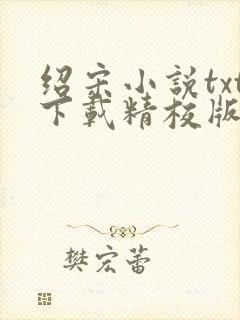 绍宋小説txt
下載精校版
樊宏蕾